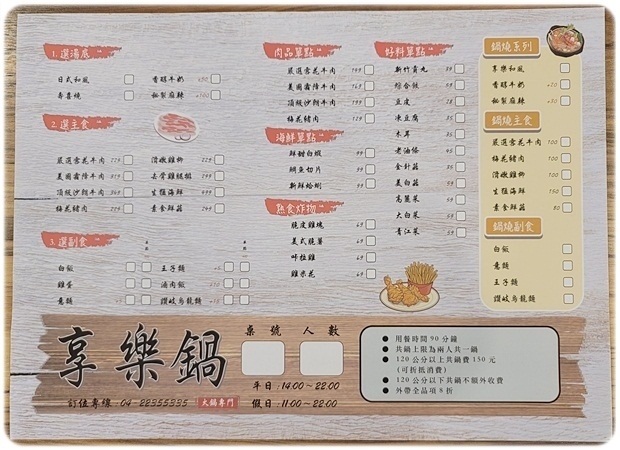 1. 選湯底
日式和風
香醇牛奶 +50
壽喜燒
秘製麻辣 +100
2. 選主食
嚴選雪花牛肉 229
嫩嫩雞柳 229
美國霜降牛肉
去骨雞腿排
頂級沙朗牛肉
生猛海鮮
梅花豬肉
素食鮮菇
3. 選副食
白飯
王子麵
雞蛋
滷肉飯
意麵
讚岐烏龍麵
肉品單點
嚴選雪花牛肉
美國霜降牛肉
頂級沙朗牛肉
梅花豬肉
海鮮單點
鮮甜白蝦
鯛魚切片
新鮮蛤蜊
熱食炸物
脆皮雞塊
美式脆薯
咔拉雞
雞米花
好料單點
新竹貢丸
綜合餃
豆皮
凍豆腐
木耳
老油條
金針菇
美白菇
高麗菜
大白菜
青江菜
鍋燒系列
享樂和風
香醇牛奶 +20
秘製麻辣 +30
鍋燒主食
嚴選雪花牛肉 100
梅花豬肉 100
嫩嫩雞柳 100
生猛海鮮 150
素食鮮菇 80
鍋燒副食
白飯
意麵
王子麵
讚岐烏龍麵
享樂鍋
訂位專線 04-22355335 火鍋專門
桌號 人數
平日:14:00~22:00
假日:11:00~22:00
● 用餐時間90分鐘
● 共鍋上限為兩人共一鍋
● 120公分以上共鍋費150元
(可折抵消費)
● 120公分以下共鍋不額外收費
● 外帶全品項8折